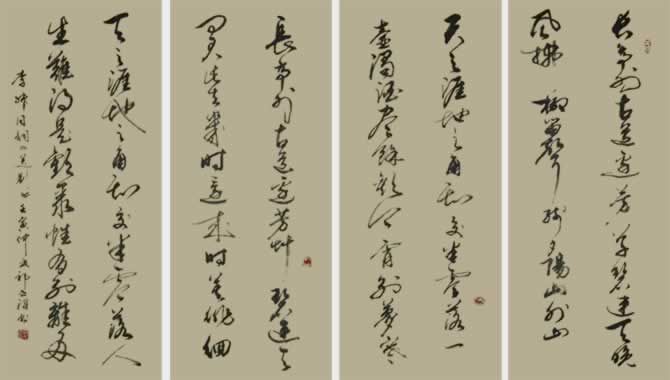 長亭外古道邊芳草碧連天晚
風拂柳笛聲殘夕陽山外山
天之涯地之角知交半零落一
壺濁酒盡餘歡今宵別夢寒
長亭外古道邊芳草碧連天
问君此去幾時還來時莫徘徊
天之涯地之角知交半零落人
生難得是歡聚惟有別離多
李叔同詞送别